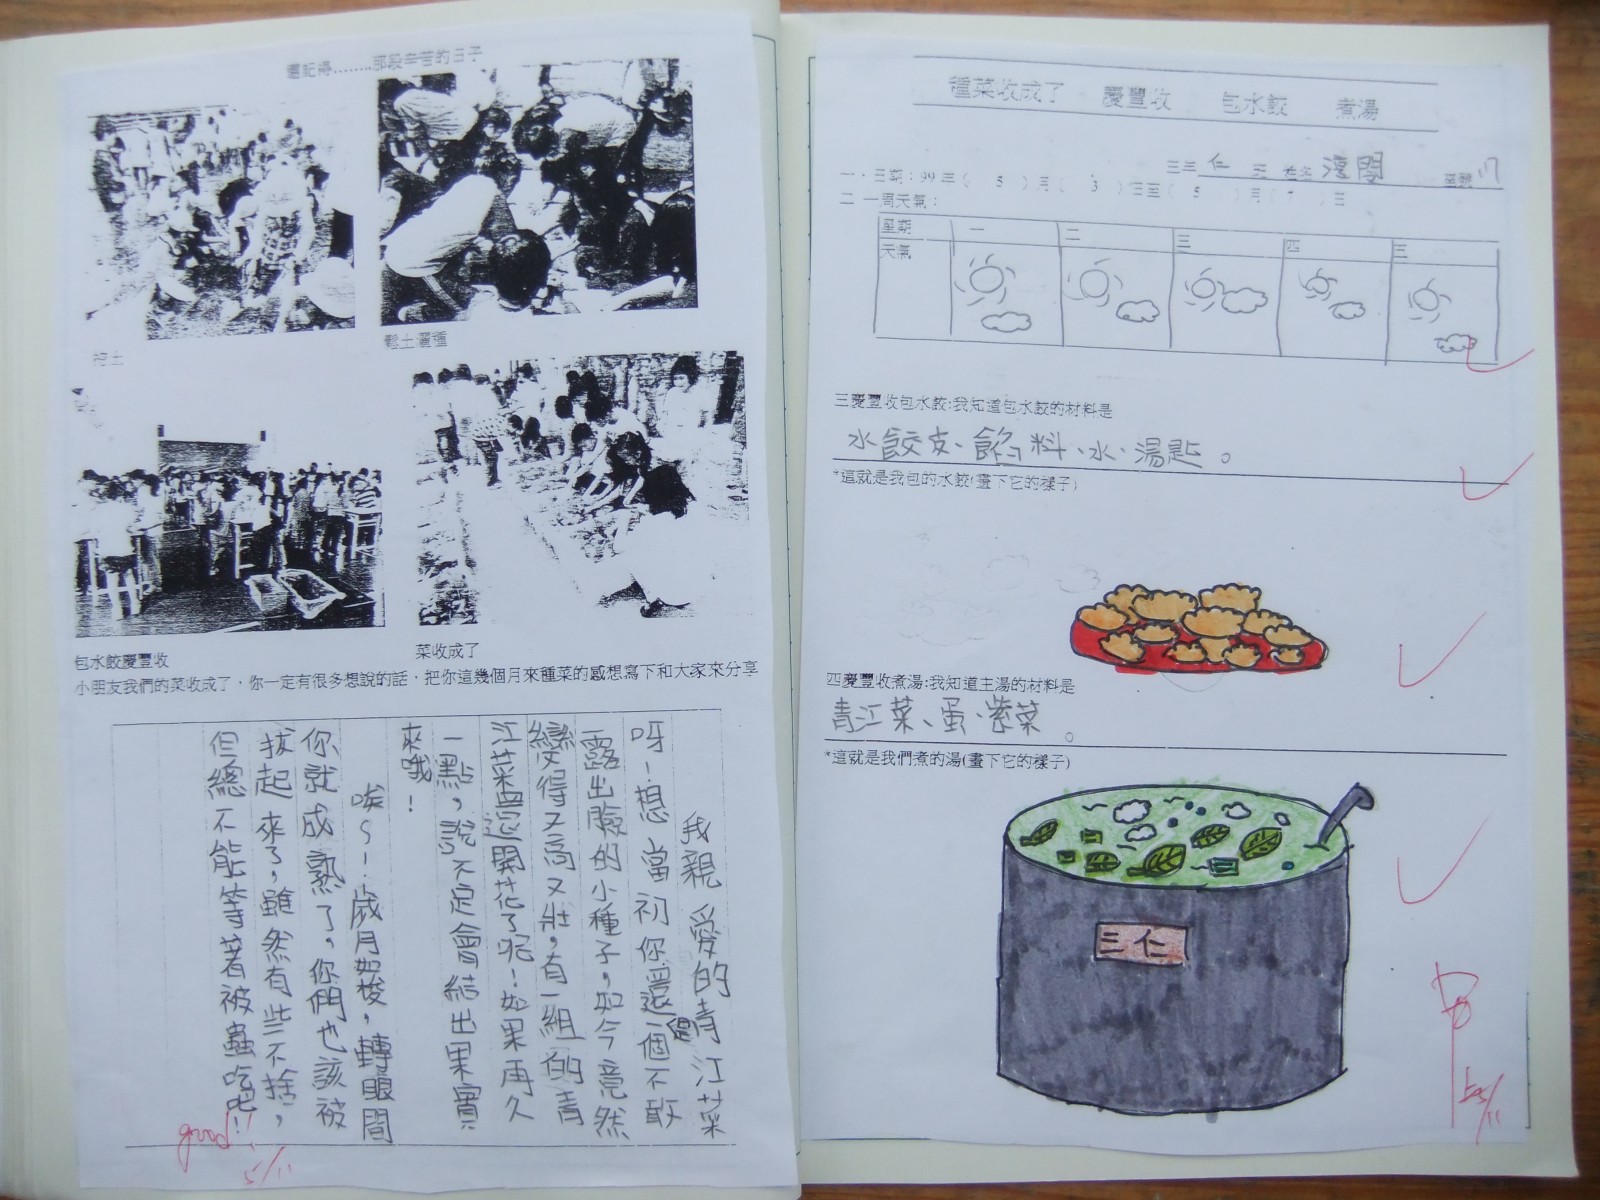 還記得........那段辛苦的日子
挖土
鬆土灑種
包水餃慶豐收
菜收成了
小朋友我們的菜收成了，你一定有很多想說的話，把你這幾個月來種菜的感想寫下和大家來分享
我親愛的青江菜
呀！想當初你還是一個不敢
露出臉的小種子，如今竟然
變得又高又壯，有一組的青
江菜還開花了呢！如果再久
一點，說不定會結出果實
來哦！
唉～！歲月如梭，轉眼間
你就成熟了，你們也該被
拔起來了，雖然有些不捨，
但總不能等著被蟲吃吧！
good!
5/11
種菜收成了 慶豐收 包水餃 煮湯
三年 仁 班 姓名 座號 17
一、日期：99年( 5 )月( 3 )日至( 5 )月( 7 )日
二 一周天氣：
星期 一 二 三 四 三
天氣
三慶豐收包水餃:我知道包水餃的材料是
水餃支、餡料、水、湯匙。
*這就是我包的水餃(畫下它的樣子)
四慶豐收煮湯:我知道主湯的材料是
青江菜、蛋、紫菜。
*這就是我們煮的湯(畫下它的樣子)
三仁
5/11